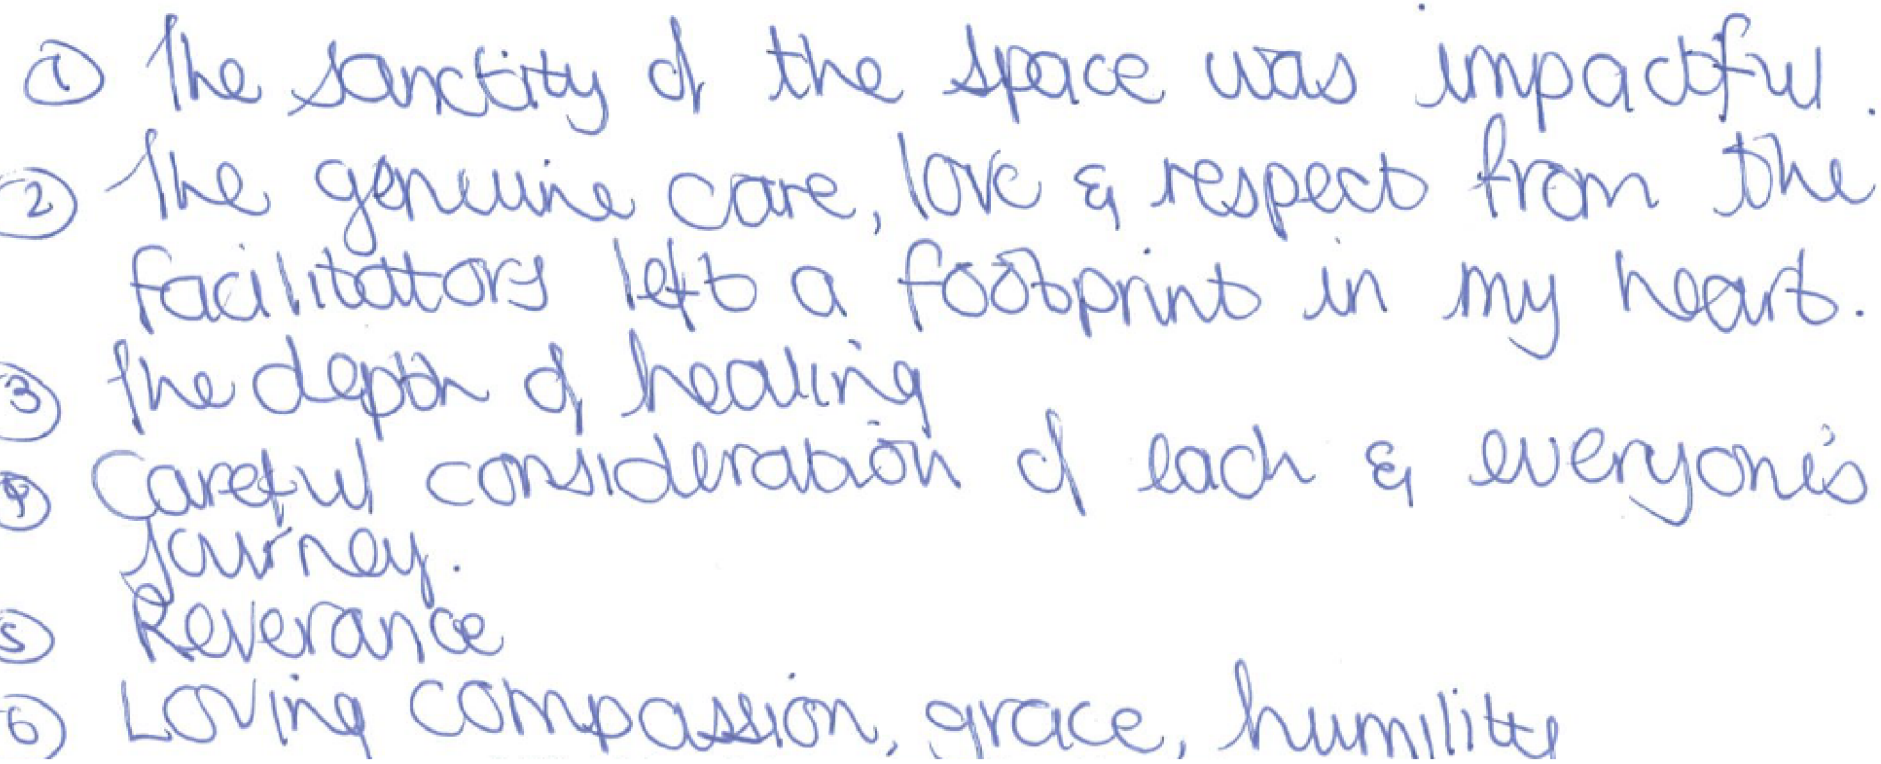 ① The sanctity of the space was impactful.
② The genuine care, love & respect from the
facilitators left a footprint in my heart.
③ The depth of healing
④ Careful consideration of each & everyone's
journey.
⑤ Reverance
⑥ Loving compassion, grace, humility